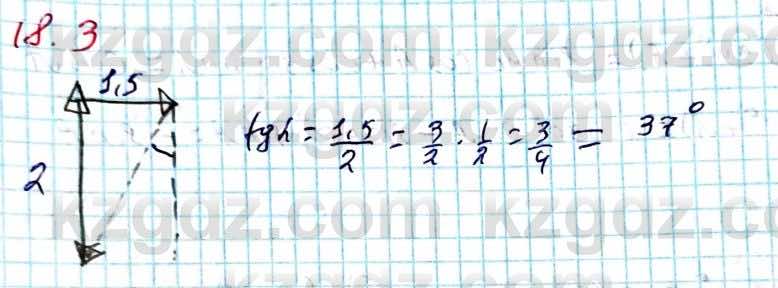 18.3
1,5
2
tgα = 1,5/2 = 3/2 · 1/2 = 3/4 = 37°
kzgdz.com kzgdz.com
kzgdz.com kzgdz.com
kzgdz.com kzgdz.com